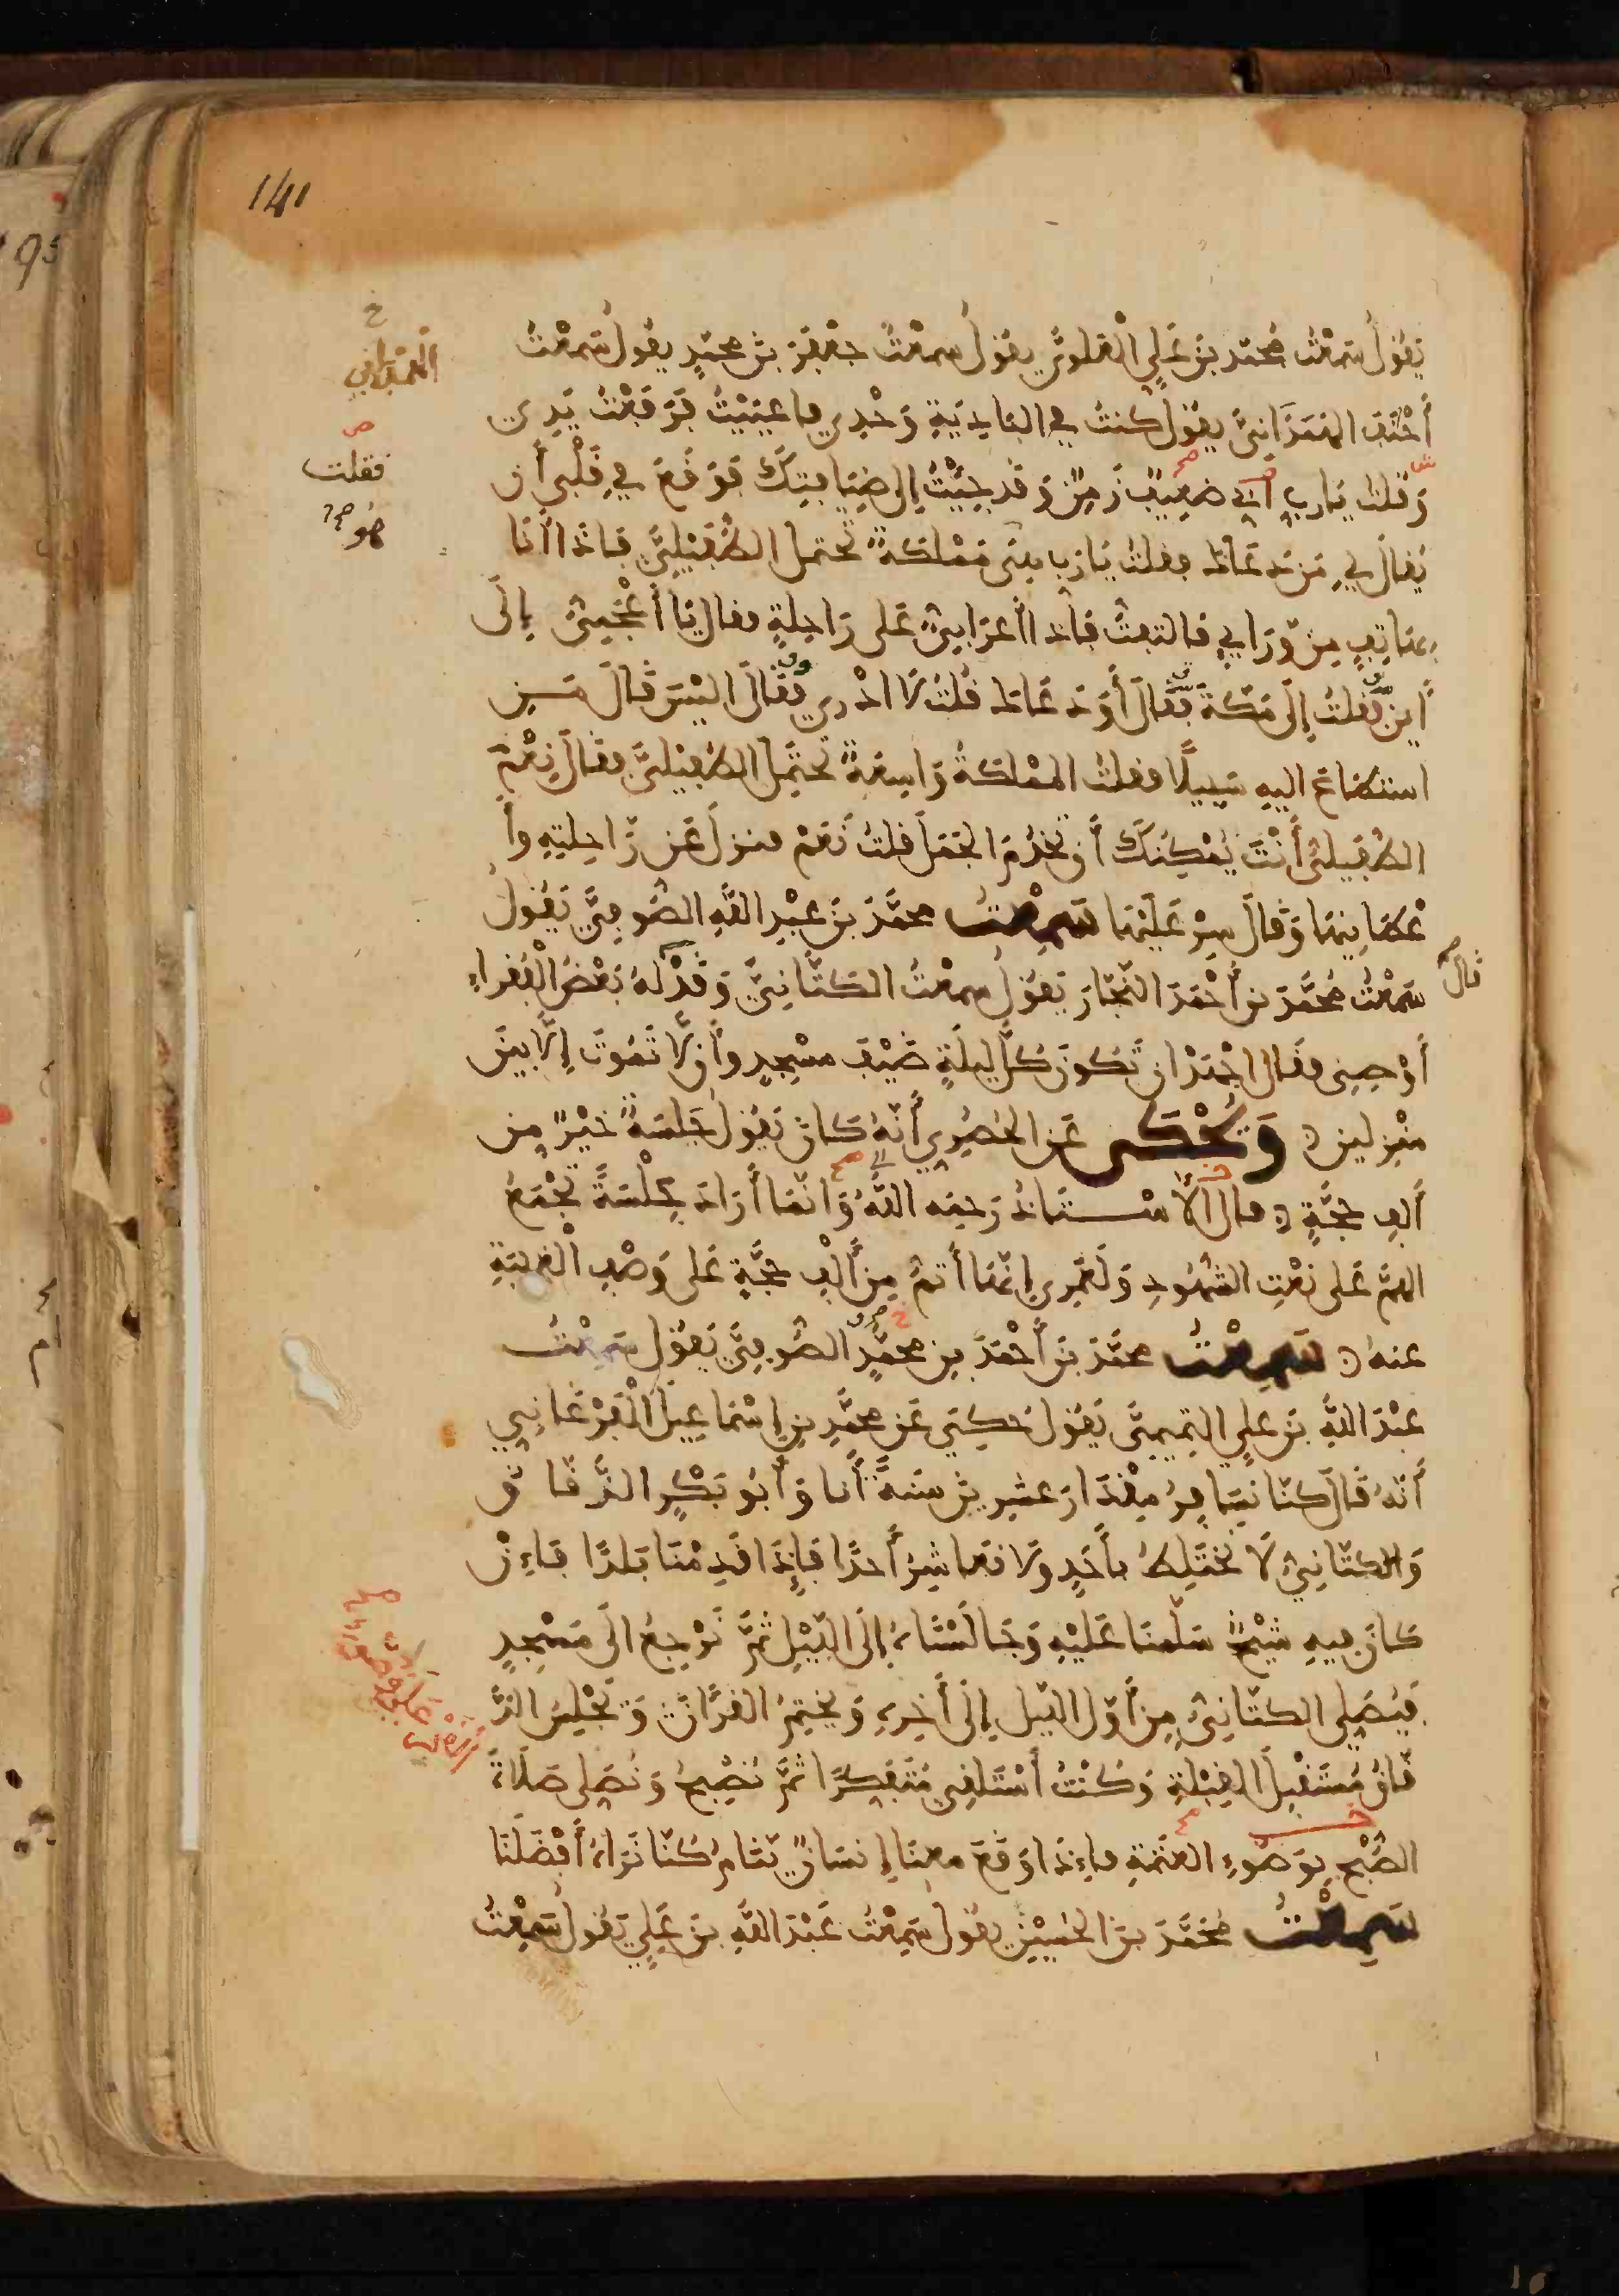 141
يَقُولُ سَمِعْتُ مُحَمَّد بْنَ عَلِيٍّ الْعَلَوِيَّ يقول سمعْتُ جَعْفَرَ بْنَ محمّدٍ يقولُ سَمِعْتُ
أَحْنَفَ الهَمَذَانِيَّ يقول كُنتُ في البَادِيَةِ وَحْدِي فاعْيَيْتُ فَرَفَعْتُ يَدِي
وَقُلتُ يَارب إني ضعِيفٌ زَمِنٌ وَقَد جِئْتُ إلى ضِيَافَتِكَ فَوَقَعَ فِي قَلْبِي أَن
يُقالَ لِي مَن دَعَاكَ فقلتُ يَا رَبِّ هِيَ مَمْلَكَةٌ تحتمل الطُّفَيْلِيَّ فَإذا أنَا
بِهَاتِفٍ مِن وَرَائِي فَالتفتُّ فَإذا أعْرَابِيٌّ عَلى رَاحِلَةٍ فقال يَا أَعْجَمِيُّ إلَى
أَينَ فَقُلتُ إلَى مَكَّةَ فَقَالَ أَوَدَعَاكَ قُلتُ لَا ادْرِي فَقَالَ اليْسَ قَالَ مَـنِ
استطَاعَ اليهِ سَبِيلًا فقلتُ المَمْلَكَةُ وَاسِعَةٌ تَحتَمِلُ الطُّفَيْلِيَّ فقَالَ نِعْمَ
الطُّفَيلِيُّ أَنْتَ يُمْكِنُكَ أَن تَخْدُمَ الجَمَلَ قلتُ نَعَمْ فنزلَ عَن رَّاحِلتِهِ وأَ
عْطَانِيهَا وَقَالَ سِرْ عَلَيْهَا سَمِعْتُ محمَّدَ بْنَ عَبْدِ اللَّهِ الصُّوفِيَّ يَقُولُ
سَمِعْتُ مُحَمَّدَ بن أَحْمَدَ النّجّارَ يَقُولُ سمعْتُ الكَتَّانِيَّ وَقَدْ لَهُ بَعْضُ الْفُقراءِ
أَوْصِنِي فقَالَ اجْتَهدْ ان تَكُونَ كُلَّ ليلَةٍ ضَيْفَ مسْجِدٍ وأَن لَّا تَمُوتَ إلَّا بَيْنَ
منزِلينِ وَيُحْكَى عَنِ الحُصْرِي أَنّهُ كَانَ يَقُولُ جَلْسَةٌ خَيْرٌ مِن
أَلفِ حَجَّةٍ قال الأُسْتَاذُ رَحِمَه اللَّهُ وَانّمَا أَرَادَ جَلْسَةً تَجْمَعُ
الهَمَّ عَلى نَعْتِ الشُّهُودِ وَلَعَمْرِي إنّهَا أَتمُّ مِنْ أَلْفِ حَجَّةٍ عَلى وَصْفِ الْغَيْبَةِ
عنهُ سَمِعْتُ محمَّدَ بْنَ أَحْمَدَ بنِ محمَّدٍ الصُّوفِيَّ يَقُول سَمِعْتُ
عَبْدَ اللَّهِ بْنَ عَلِيٍّ التّمِيمِيَّ يَقُولُ حُكِيَ عَن محمَّدِ بنِ إسْمَاعِيلَ الْفَرْغَانِيِي
أَنّهُ قَالَ كُنّا نُسَافِرُ مِقْدَارَ عشرِينَ سَنَةً أَنا وَأَبُو بَكْرٍ الزَّقَّاقُ
وَالكَتّانِيُّ لَا نَخْتَلِطُ بأَحَدٍ وَلا نُعاشِرُ أحدًا فَإِذَا قَدِمْنَا بَلدًا فَإن
كَانَ فِيهِ شَيْخٌ سَلّمْنَا عَلَيْهِ وَجَالَسْنَاهُ إلَى اللّيْلِ ثُمَّ نَرْجِعُ الَى مَسْجِدٍ
فَيُصَلِي الكَتّانِيُّ مِن أَوّلِ اللّيل إلَى أخِرِهِ وَيختِمُ القُرَّانَ وَيَجْلِسُ الزَّ
قّاقُ مُسْتَقْبِلَ القِبْلَةِ وَكُنْتُ أَسْتَلقِي مُتَفَكِرًا ثمَّ نُصْبِحُ وَنُصَلِي صَلَاةَ
الصُّبْحِ بِوَضُوءِ العتَمَةِ فإذا وَقَعَ معنَا إنسَانٌ يَنَامُ كُنّا نَرَاهُ أَفْضَلَنَا
سَمِعْتُ مُحَمَّدَ بْنَ الحُسَيْنِ يقُولُ سَمِعْتُ عَبْدَ اللَّهِ بْنَ عَلِيٍّ يَقُولُ سَمِعْتُ
فقلت
هُو
قال